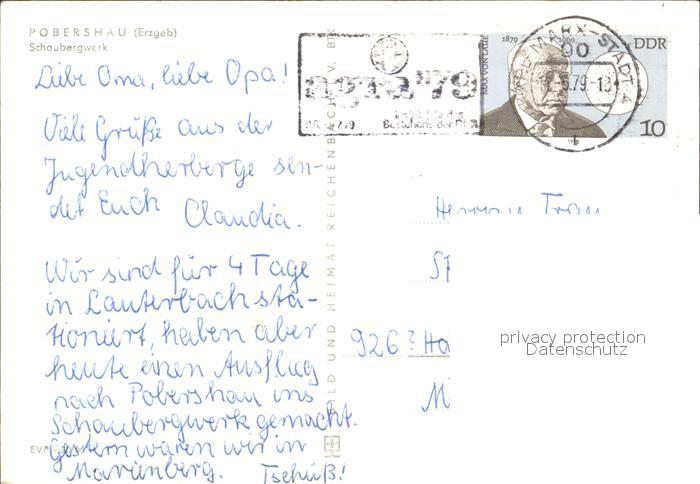 POBERSHAU (Erzgeb)
Schaubergwerk
Liebe Oma, liebe Opa!
Viele Grüße aus der
Jugendherberge sen-
det Euch Claudia.
Wir sind für 4 Tage
in Lauterbach sta-
tioniert, haben aber
heute einen Ausflug
nach Pobershau ins
Schaubergwerk gemacht.
Gestern waren wir in
Marienberg. Tschüß!
BILD UND HEIMAT REICHENBACH V.
agra '79
Bestehens der
MAX VON LAUE
1879 1960
DDR
10
MARX-STADT 4
79
Herrn u. Frau
926
Ha
M
privacy protection
Datenschutz